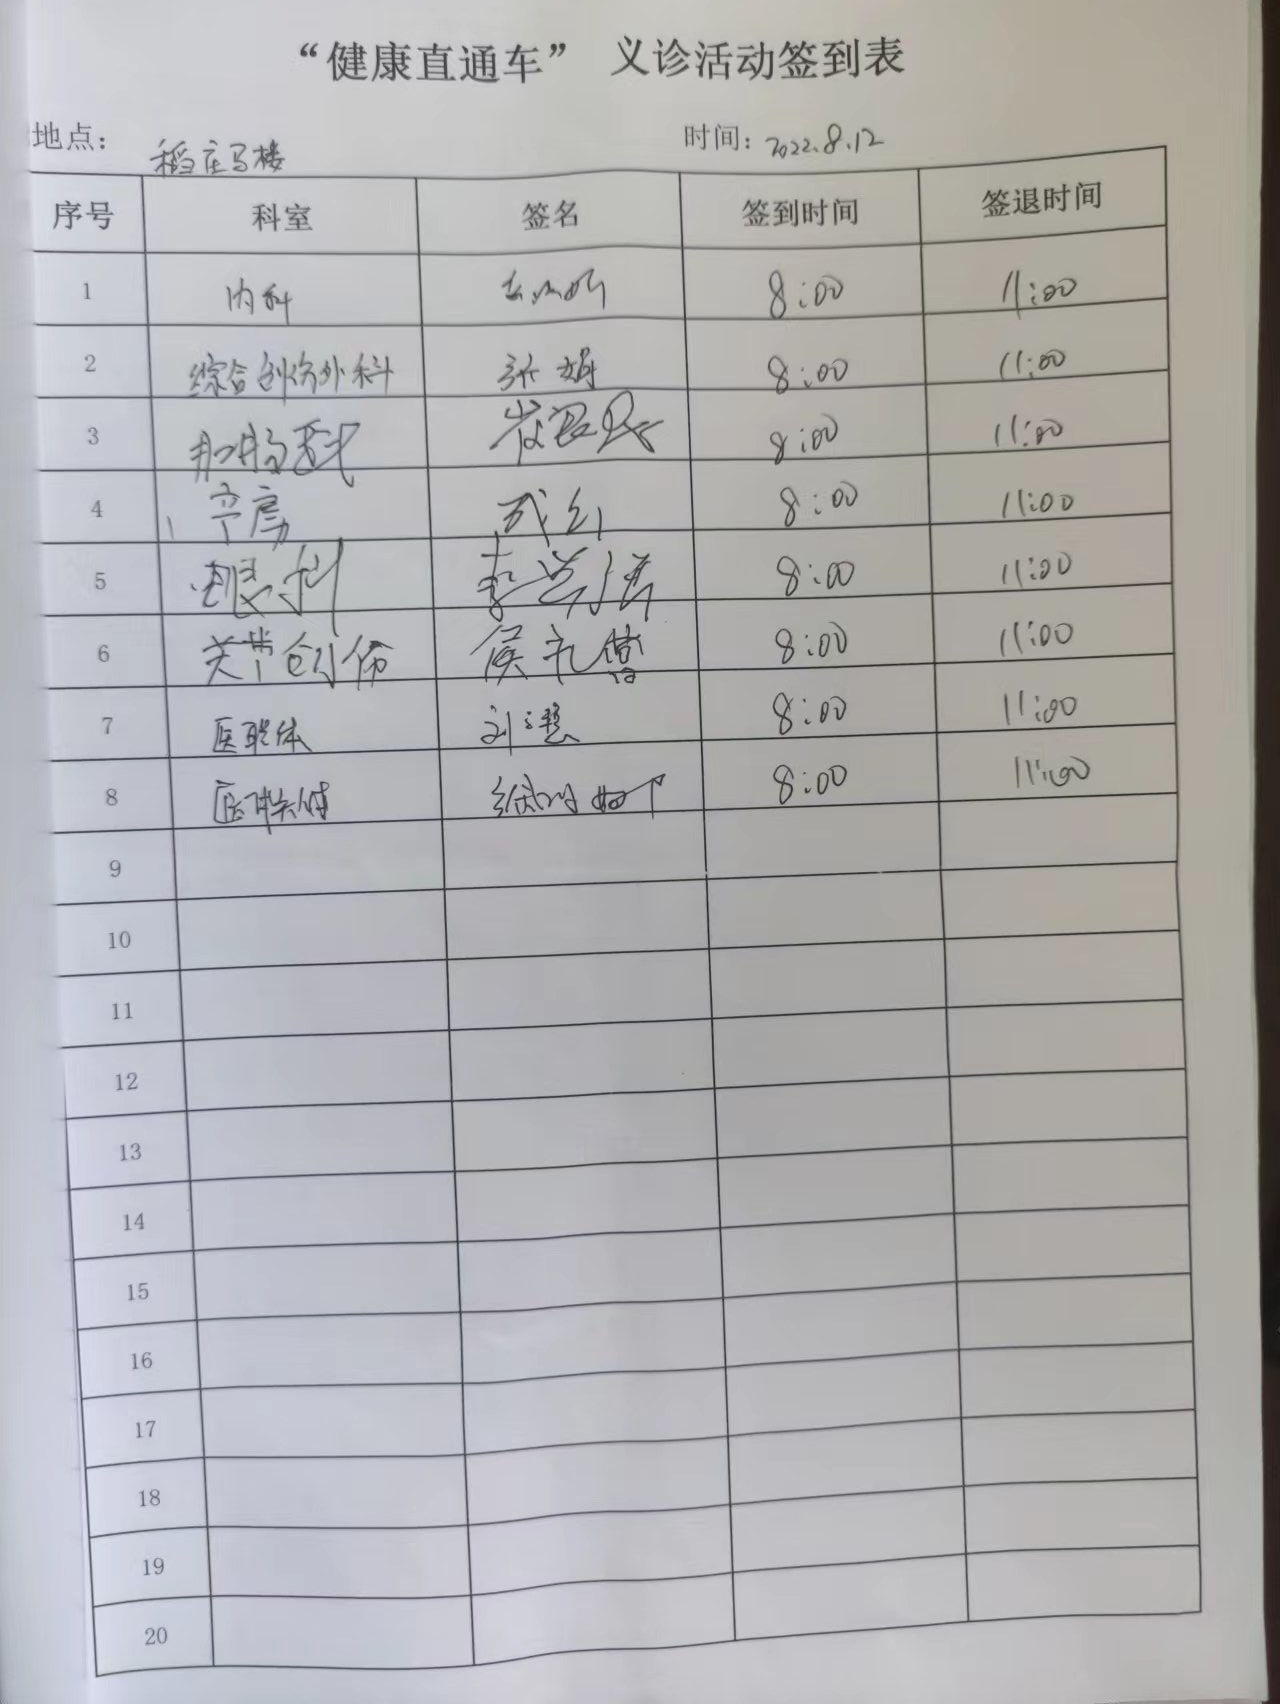 “健康直通车” 义诊活动签到表
地点: 稻庄马楼 时间: 2022.8.12
序号 科室 签名 签到时间 签退时间
1 内科 8:00 11:00
2 综合创伤外科 张娟 8:00 11:00
3 8:00 11:00
4 8:00 11:00
5 眼科 8:00 11:00
6 关节创伤 侯礼 8:00 11:00
7 医联体 刘慧 8:00 11:00
8 医联体 8:00 11:00
9
10
11
12
13
14
15
16
17
18
19
20